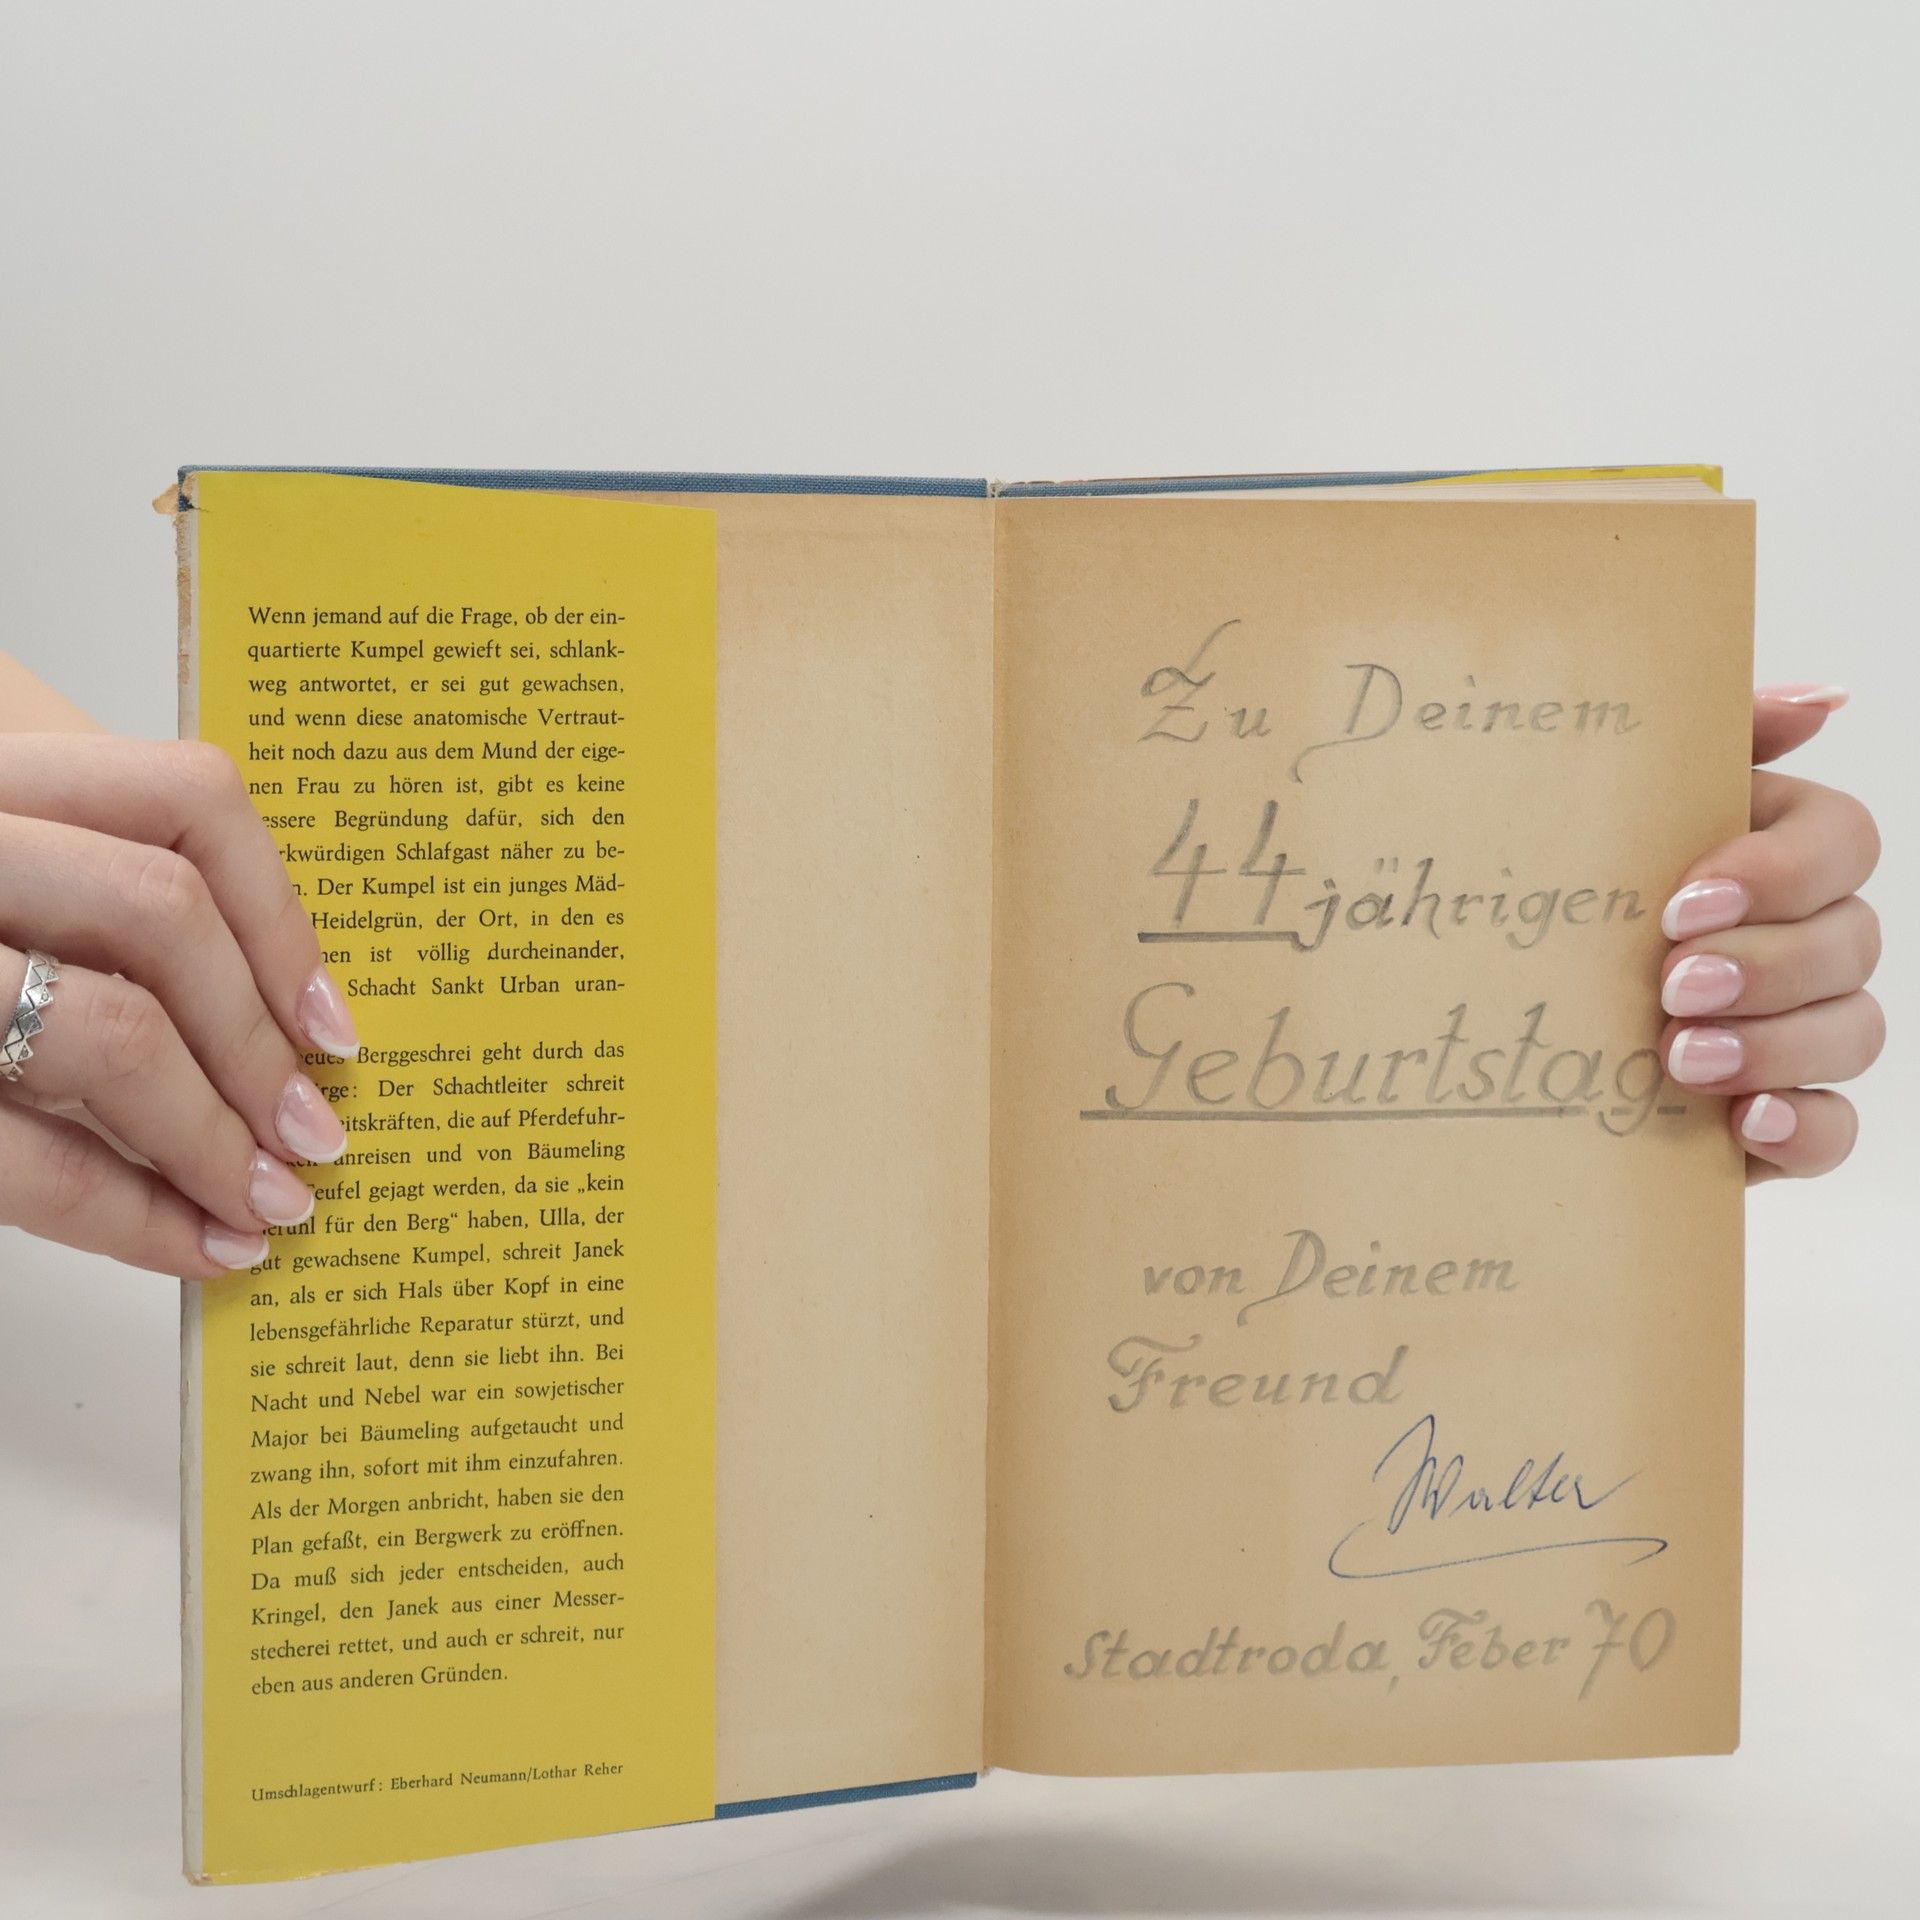 Wenn jemand auf die Frage, ob der ein-
quartierte Kumpel gewieft sei, schlank-
weg antwortet, er sei gut gewachsen,
und wenn diese anatomische Vertraut-
heit noch dazu aus dem Mund der eige-
nen Frau zu hören ist, gibt es keine
essere Begründung dafür, sich den
rkwürdigen Schlafgast näher zu be-
n. Der Kumpel ist ein junges Mäd-
Heidelgrün, der Ort, in den es
en ist völlig durcheinander,
Schacht Sankt Urban uran-
eues Berggeschrei geht durch das
irge: Der Schachtleiter schreit
eitskräften, die auf Pferdefuhr-
ken anreisen und von Bäumeling
Teufel gejagt werden, da sie „kein
für den Berg“ haben, Ulla, der
gut gewachsene Kumpel, schreit Janek
an, als er sich Hals über Kopf in eine
lebensgefährliche Reparatur stürzt, und
sie schreit laut, denn sie liebt ihn. Bei
Nacht und Nebel war ein sowjetischer
Major bei Bäumeling aufgetaucht und
zwang ihn, sofort mit ihm einzufahren.
Als der Morgen anbricht, haben sie den
Plan gefaßt, ein Bergwerk zu eröffnen.
Da muß sich jeder entscheiden, auch
Kringel, den Janek aus einer Messer-
stecherei rettet, und auch er schreit, nur
eben aus anderen Gründen.
Umschlagentwurf: Eberhard Neumann/Lothar Reher
Zu Deinem
44jährigen
Geburtstag
von Deinem
Freund
Walter
Stadtroda, Feber 70